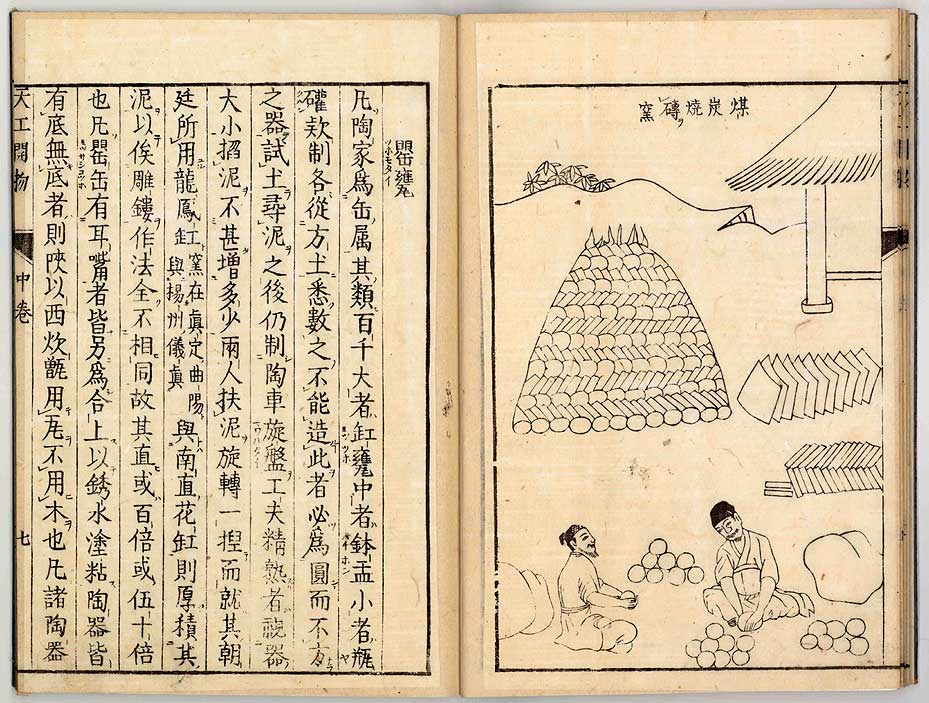 煤炭燒磚窯
罌甕
凡陶家爲缶属其類百千大者缸甕中者鉢盂小者瓶
礶欵制各從方土悉數之不能造此者必爲圓而不方
之器試土尋泥之後仍制陶車旋盤工夫精熟者視器
大小掐泥不甚增多少兩人扶泥旋轉一捏而就其朝
廷所用龍鳳缸窯在眞定曲陽與楊州儀眞與南直花缸則厚積其
泥以俟雕鏤作法全不相同故其直或百倍或伍十倍
也凡罌缶有耳嘴者皆另爲合上以銹水塗粘陶器皆
有底無底者則陝以西炊甑用瓦不用木也凡諸陶器
天工開物 中卷 七